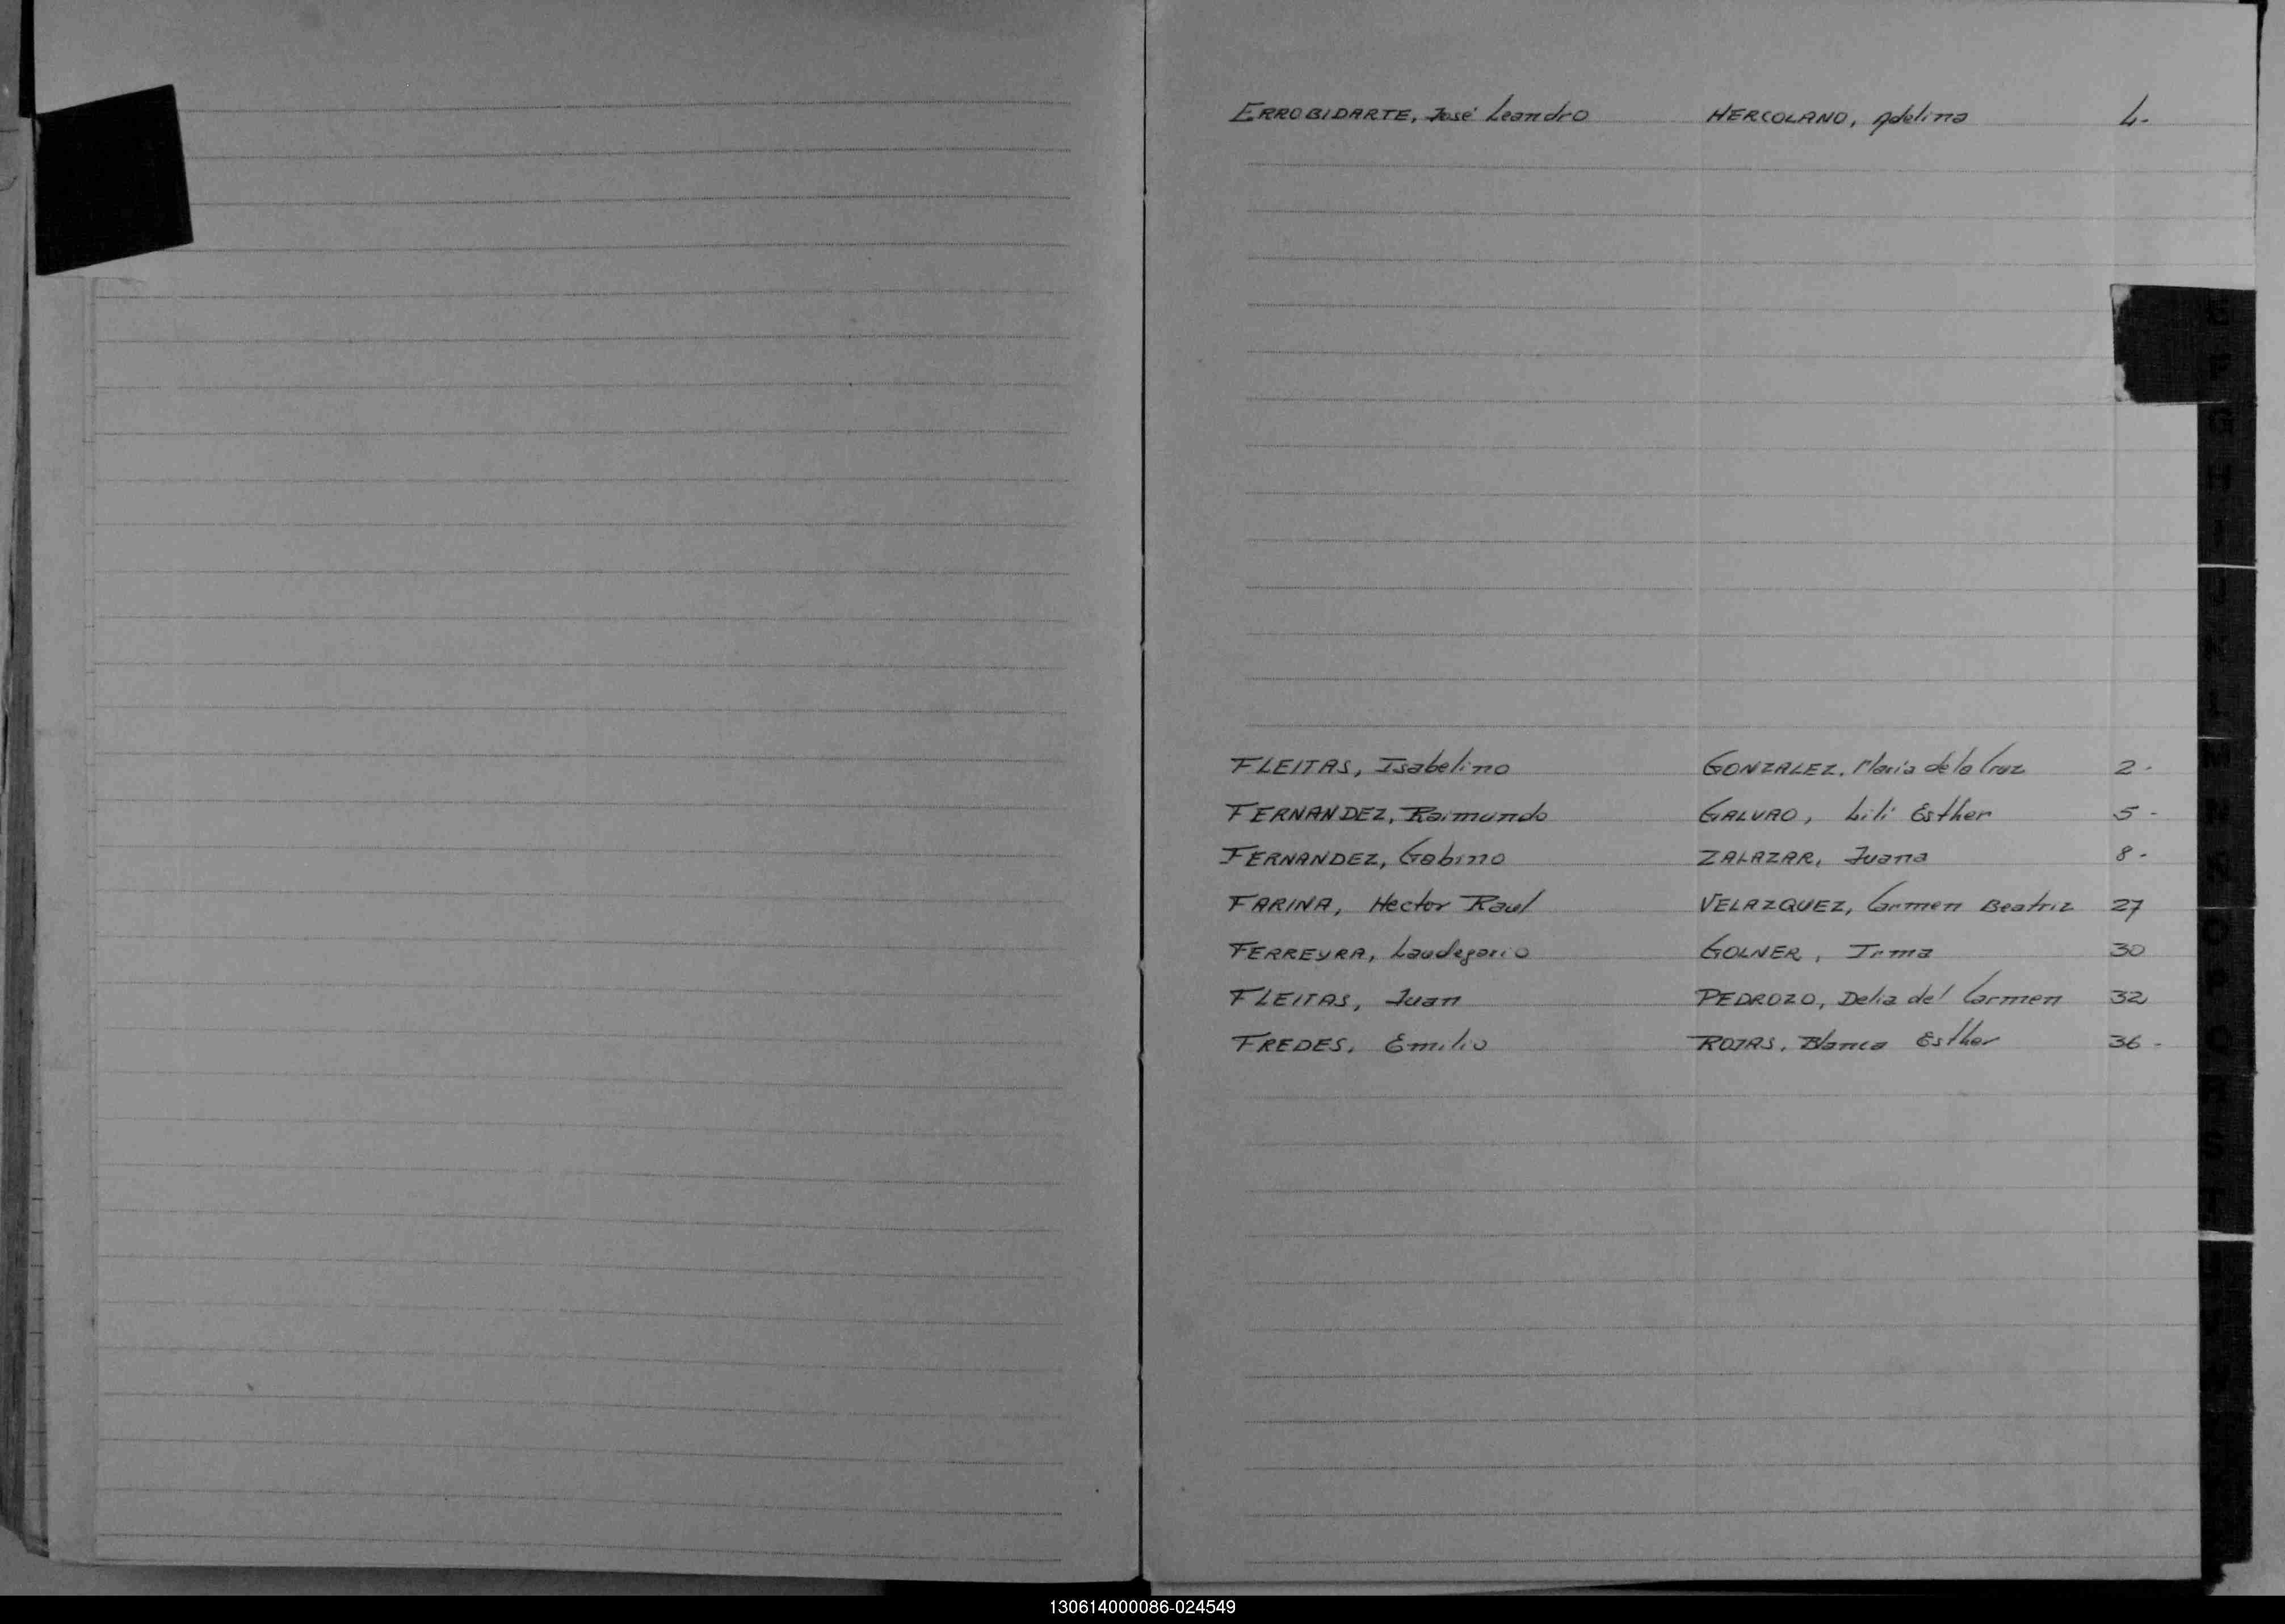 ERROBIDARTE, José Leandro HERCOLANO, Adelina 4.
FLEITAS, Isabelino GONZALEZ, Maria de la Cruz 2.
FERNANDEZ, Raimundo GALVAO, Lili Esther 5 -
FERNANDEZ, Gabino ZALAZAR, Juana 8.
FARINA, Hector Raul VELAZQUEZ, Carmen Beatriz 27
FERREYRA, Laudegario GOLNER, Irma 30
FLEITAS, Juan PEDROZO, Delia del Carmen 32
FREDES, Emilio ROJAS, Blanca Esther 36 -
130614000086-024549